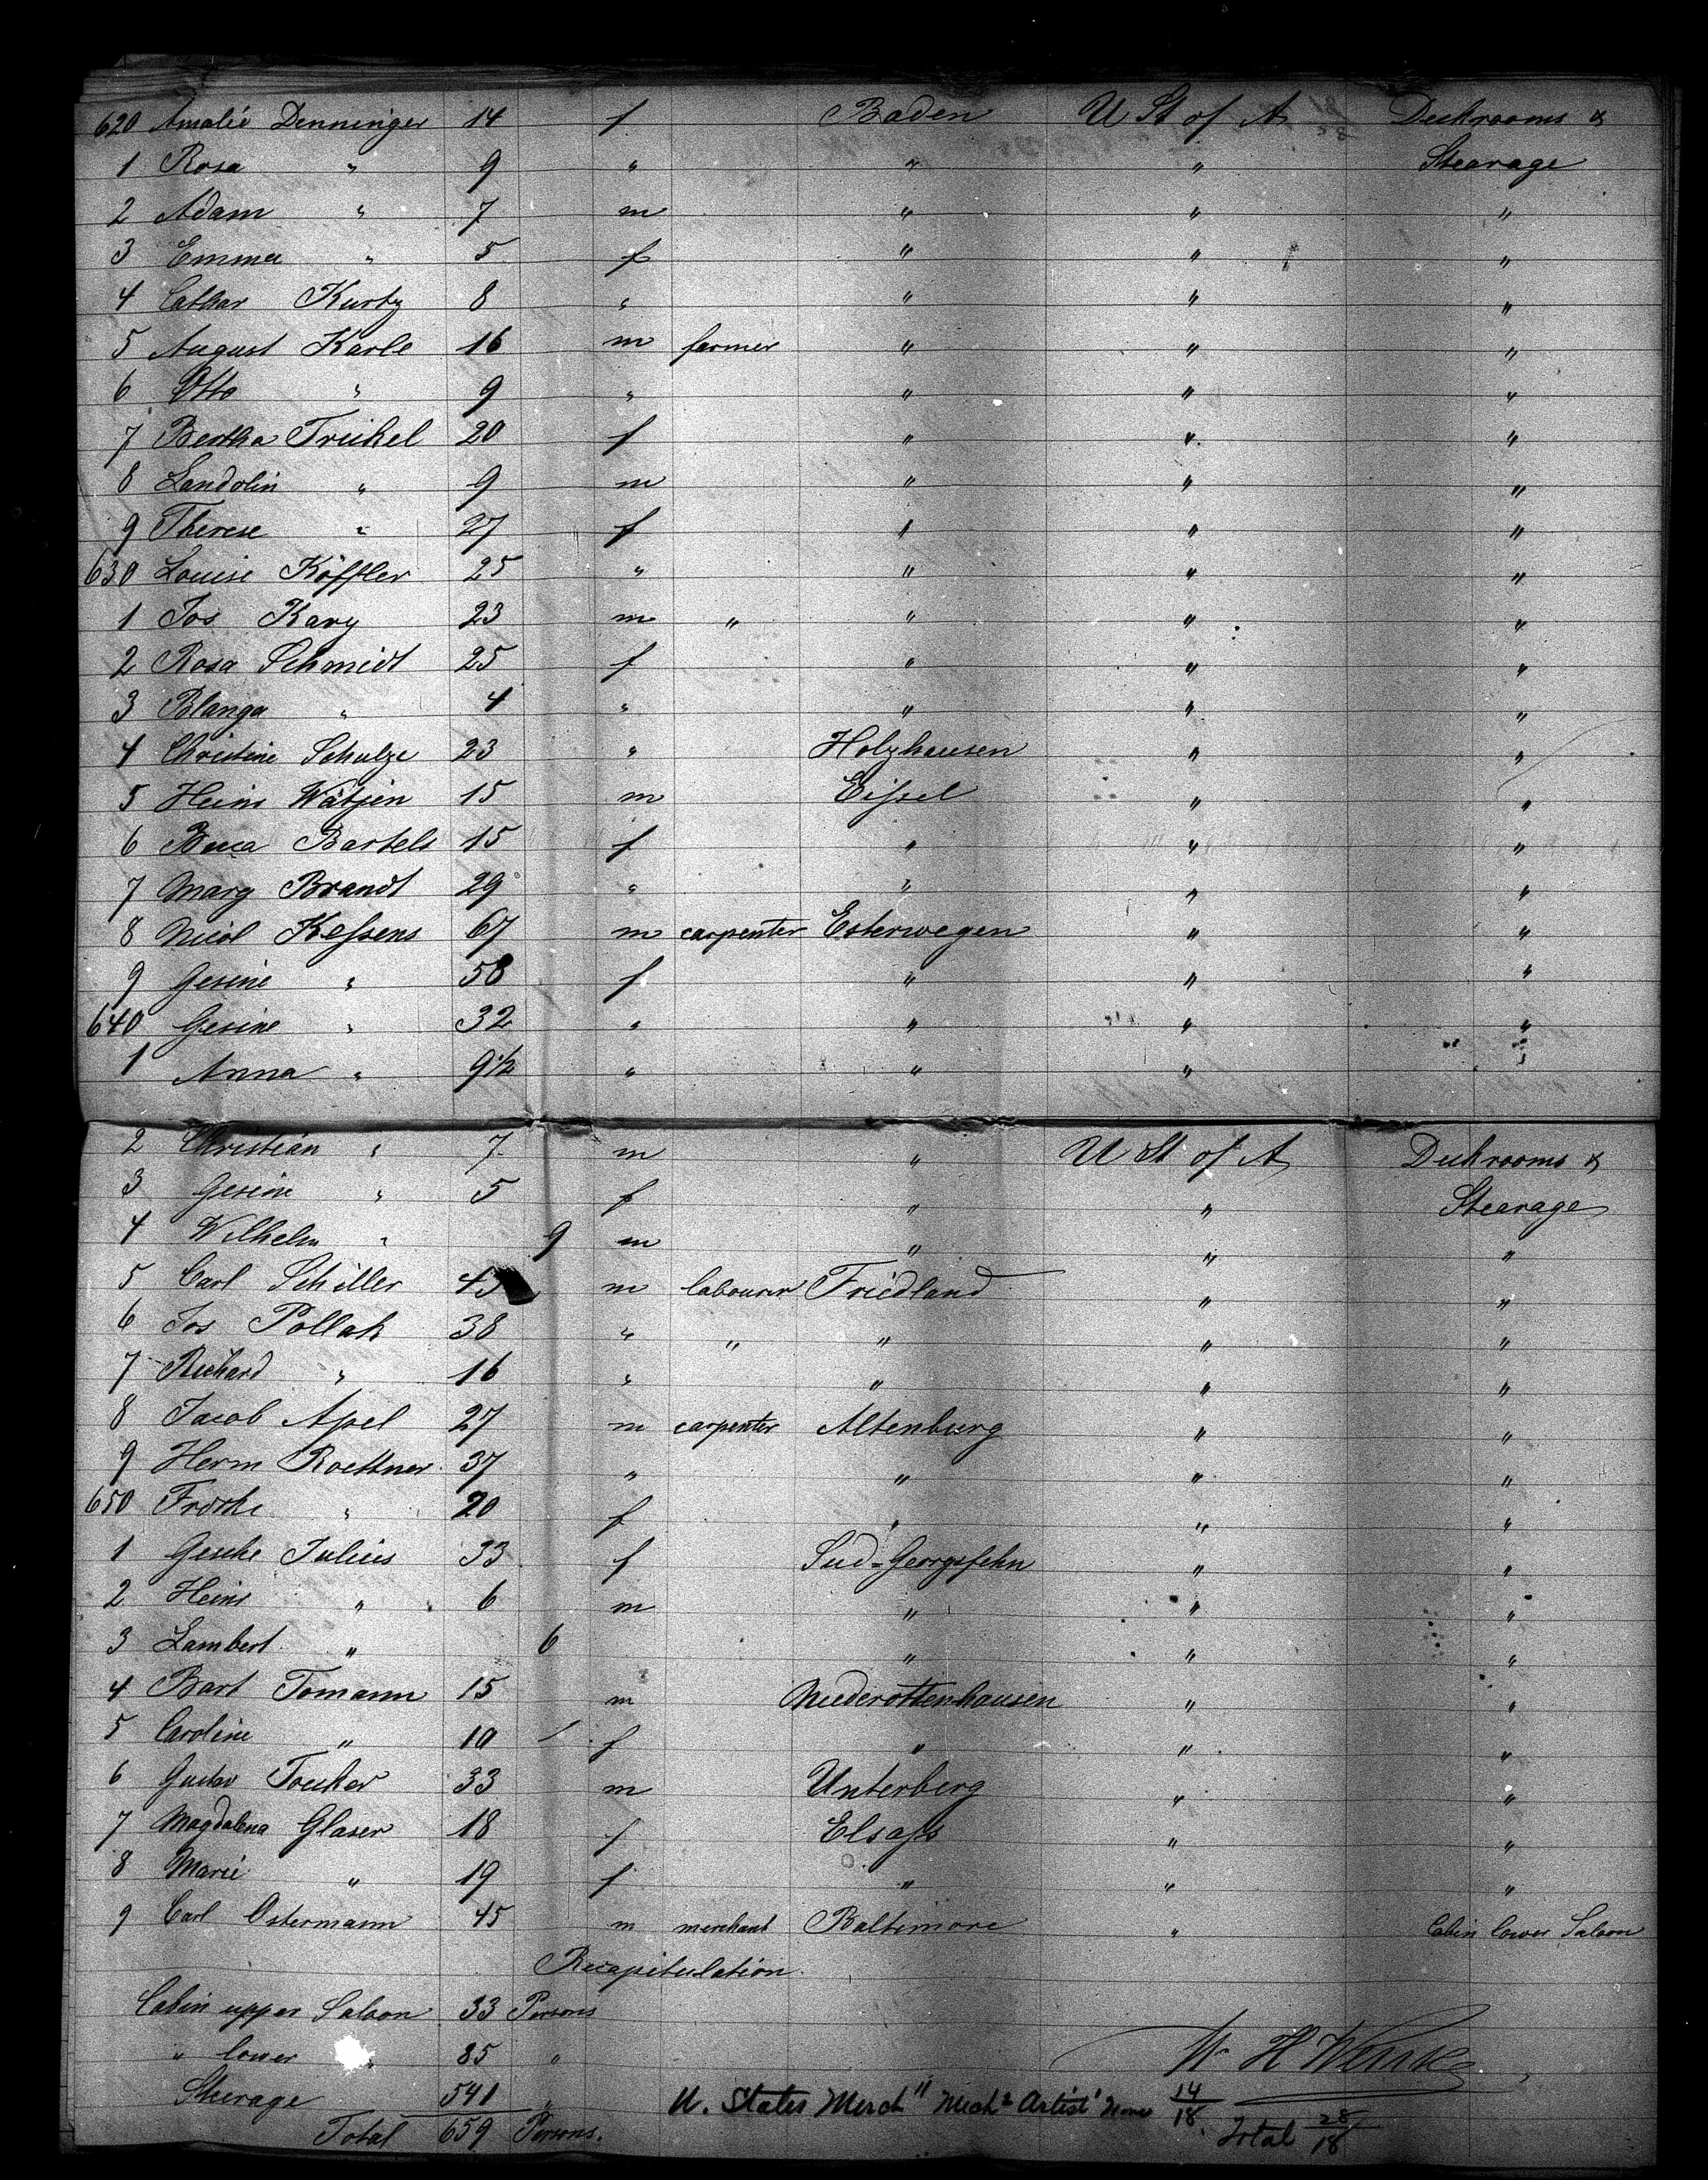 620 Amalie Denninger 14 f Baden U St of A Deckrooms &
1 Rosa " 9 " " " Stearage
2 Adam " 7 m " " "
3 Emma " 5 f " " "
4 Cathar Kurtz 8 " " " "
5 August Karle 16 m farmer " " "
6 Otto " 9 " " " "
7 Bertha Trickel 20 f " " "
8 Landolin " 9 m " " "
9 Therese " 27 f " " "
630 Louise Köffler 25 " " " "
1 Jos Kary 23 m " " " "
2 Rosa Schmidt 25 f " " "
3 Blanga " 4 " " " "
4 Christine Schulze 23 " Holzhausen " "
5 Heinr Wätjen 15 m Eissel " "
6 Beca Bartels 15 f " " "
7 Marg Brandt 29 " " " "
8 Nicol Kessens 67 m carpenter Esterwegen " "
9 Gesine " 58 f " " "
640 Gesine " 32 " " " "
1 Anna " 9½ " " "
2 Christian " 7 m " U St of A Deckrooms &
3 Gesine " 5 f " " Stearage
4 Wilhelm " 9 m " " "
5 Carl Schiller 45 m labourer Friedland " "
6 Jos Pollak 38 " " " " "
7 Richard " 16 " " " "
8 Jacob Apel 27 m carpenter Altenburg " "
9 Herm Roettner 37 " " " "
650 " 20 f " " "
1 Gesche Julius 33 f Sud-Georgsfehn " "
2 Heinr " 6 m " " "
3 Lambert " 6 " " "
4 Bart Tomann 15 m Niederottenhausen " "
5 Caroline " 10 f " " "
6 Gustav 33 m Unterberg " "
7 Magdalena Glaser 18 f Elsass " "
8 Marie " 19 f " " "
9 Carl Ostermann 45 m merchant Baltimore " Cabin lower Saloon
Recapitulation
Cabin upper Saloon 33 Persons
" lower " 85 "
Steerage 541 "
Total 659 Persons.
W H
U. States Merch " Mech 2 Artist 1 None 14/18
Total 28/18